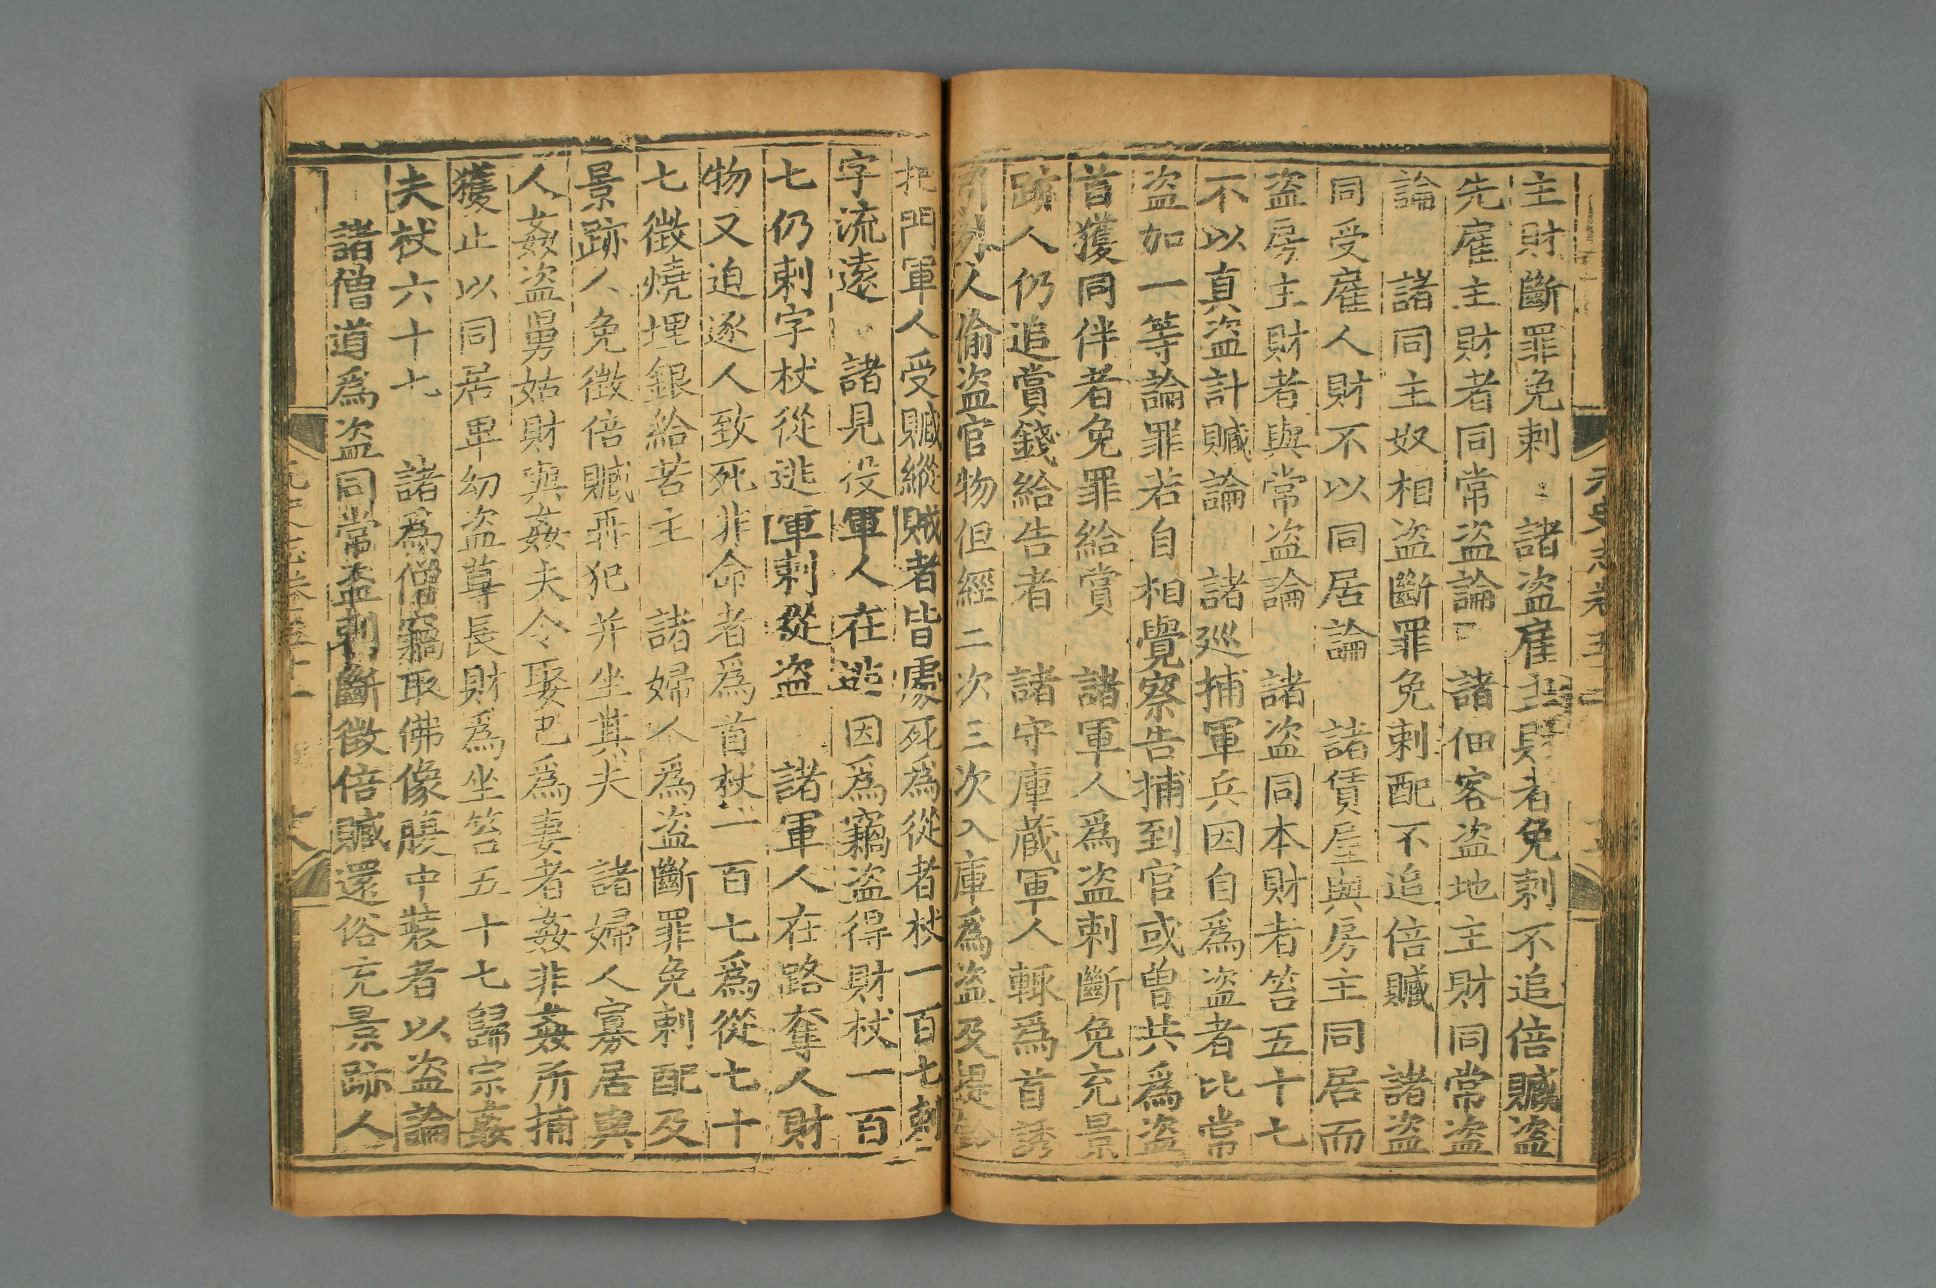 主財斷罪免刺　諸盗雇主財者免刺不追倍贓盗
先雇主財者同常盗論　諸佃客盗地主財同常盗
論　諸同主奴相盗斷罪免刺配不追倍贓　諸盗
同受雇人財不以同居論　諸賃屋與房主同居而
盗房主財者與常盗論　諸盗同本財者笞五十七
不以真盗計贓論　諸廵捕軍兵因自爲盗者比常
盗加一等論罪若自相覺察告捕到官或曽共爲盗
首獲同伴者免罪給賞　諸軍人爲盗刺斷免充景
跡人仍追賞錢給告者　諸守庫藏軍人輒爲首誘
引外人偷盗官物但經二次三次入庫爲盗及提鈴
把門軍人受贓縱賊者皆處死爲從者杖一百七刺
字流遠　諸見役軍人在逃因爲竊盗得財杖一百
七仍刺字杖從逃軍刺從盗　諸軍人在路奪人財
物又迫逐人致死非命者爲首杖一百七爲從七十
七徵燒埋銀給苦主　諸婦人爲盗斷罪免刺配及
景跡人免徵倍贓再犯并坐其夫　諸婦人寡居與
人姦盗舅姑財與姦夫令娶已爲妻者姦非姦所捕
獲止以同居卑幼盗尊長財爲坐笞五十七歸宗姦
夫杖六十七　諸爲僧竊取佛像腹中裝者以盗論
諸僧道爲盗同常盗刺斷徵倍贓還俗充景跡人
元史志卷五十二
元史志卷五十二